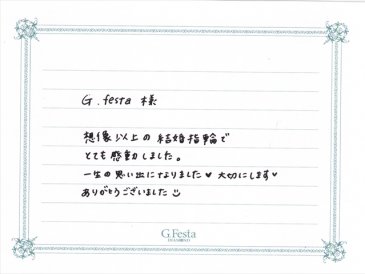 G.festa 様
想像以上の結婚指輪で
とても感動しました。
一生の思い出になりました♥ 大切にします♥
ありがとうございました☺
G.Festa
DIAMOND